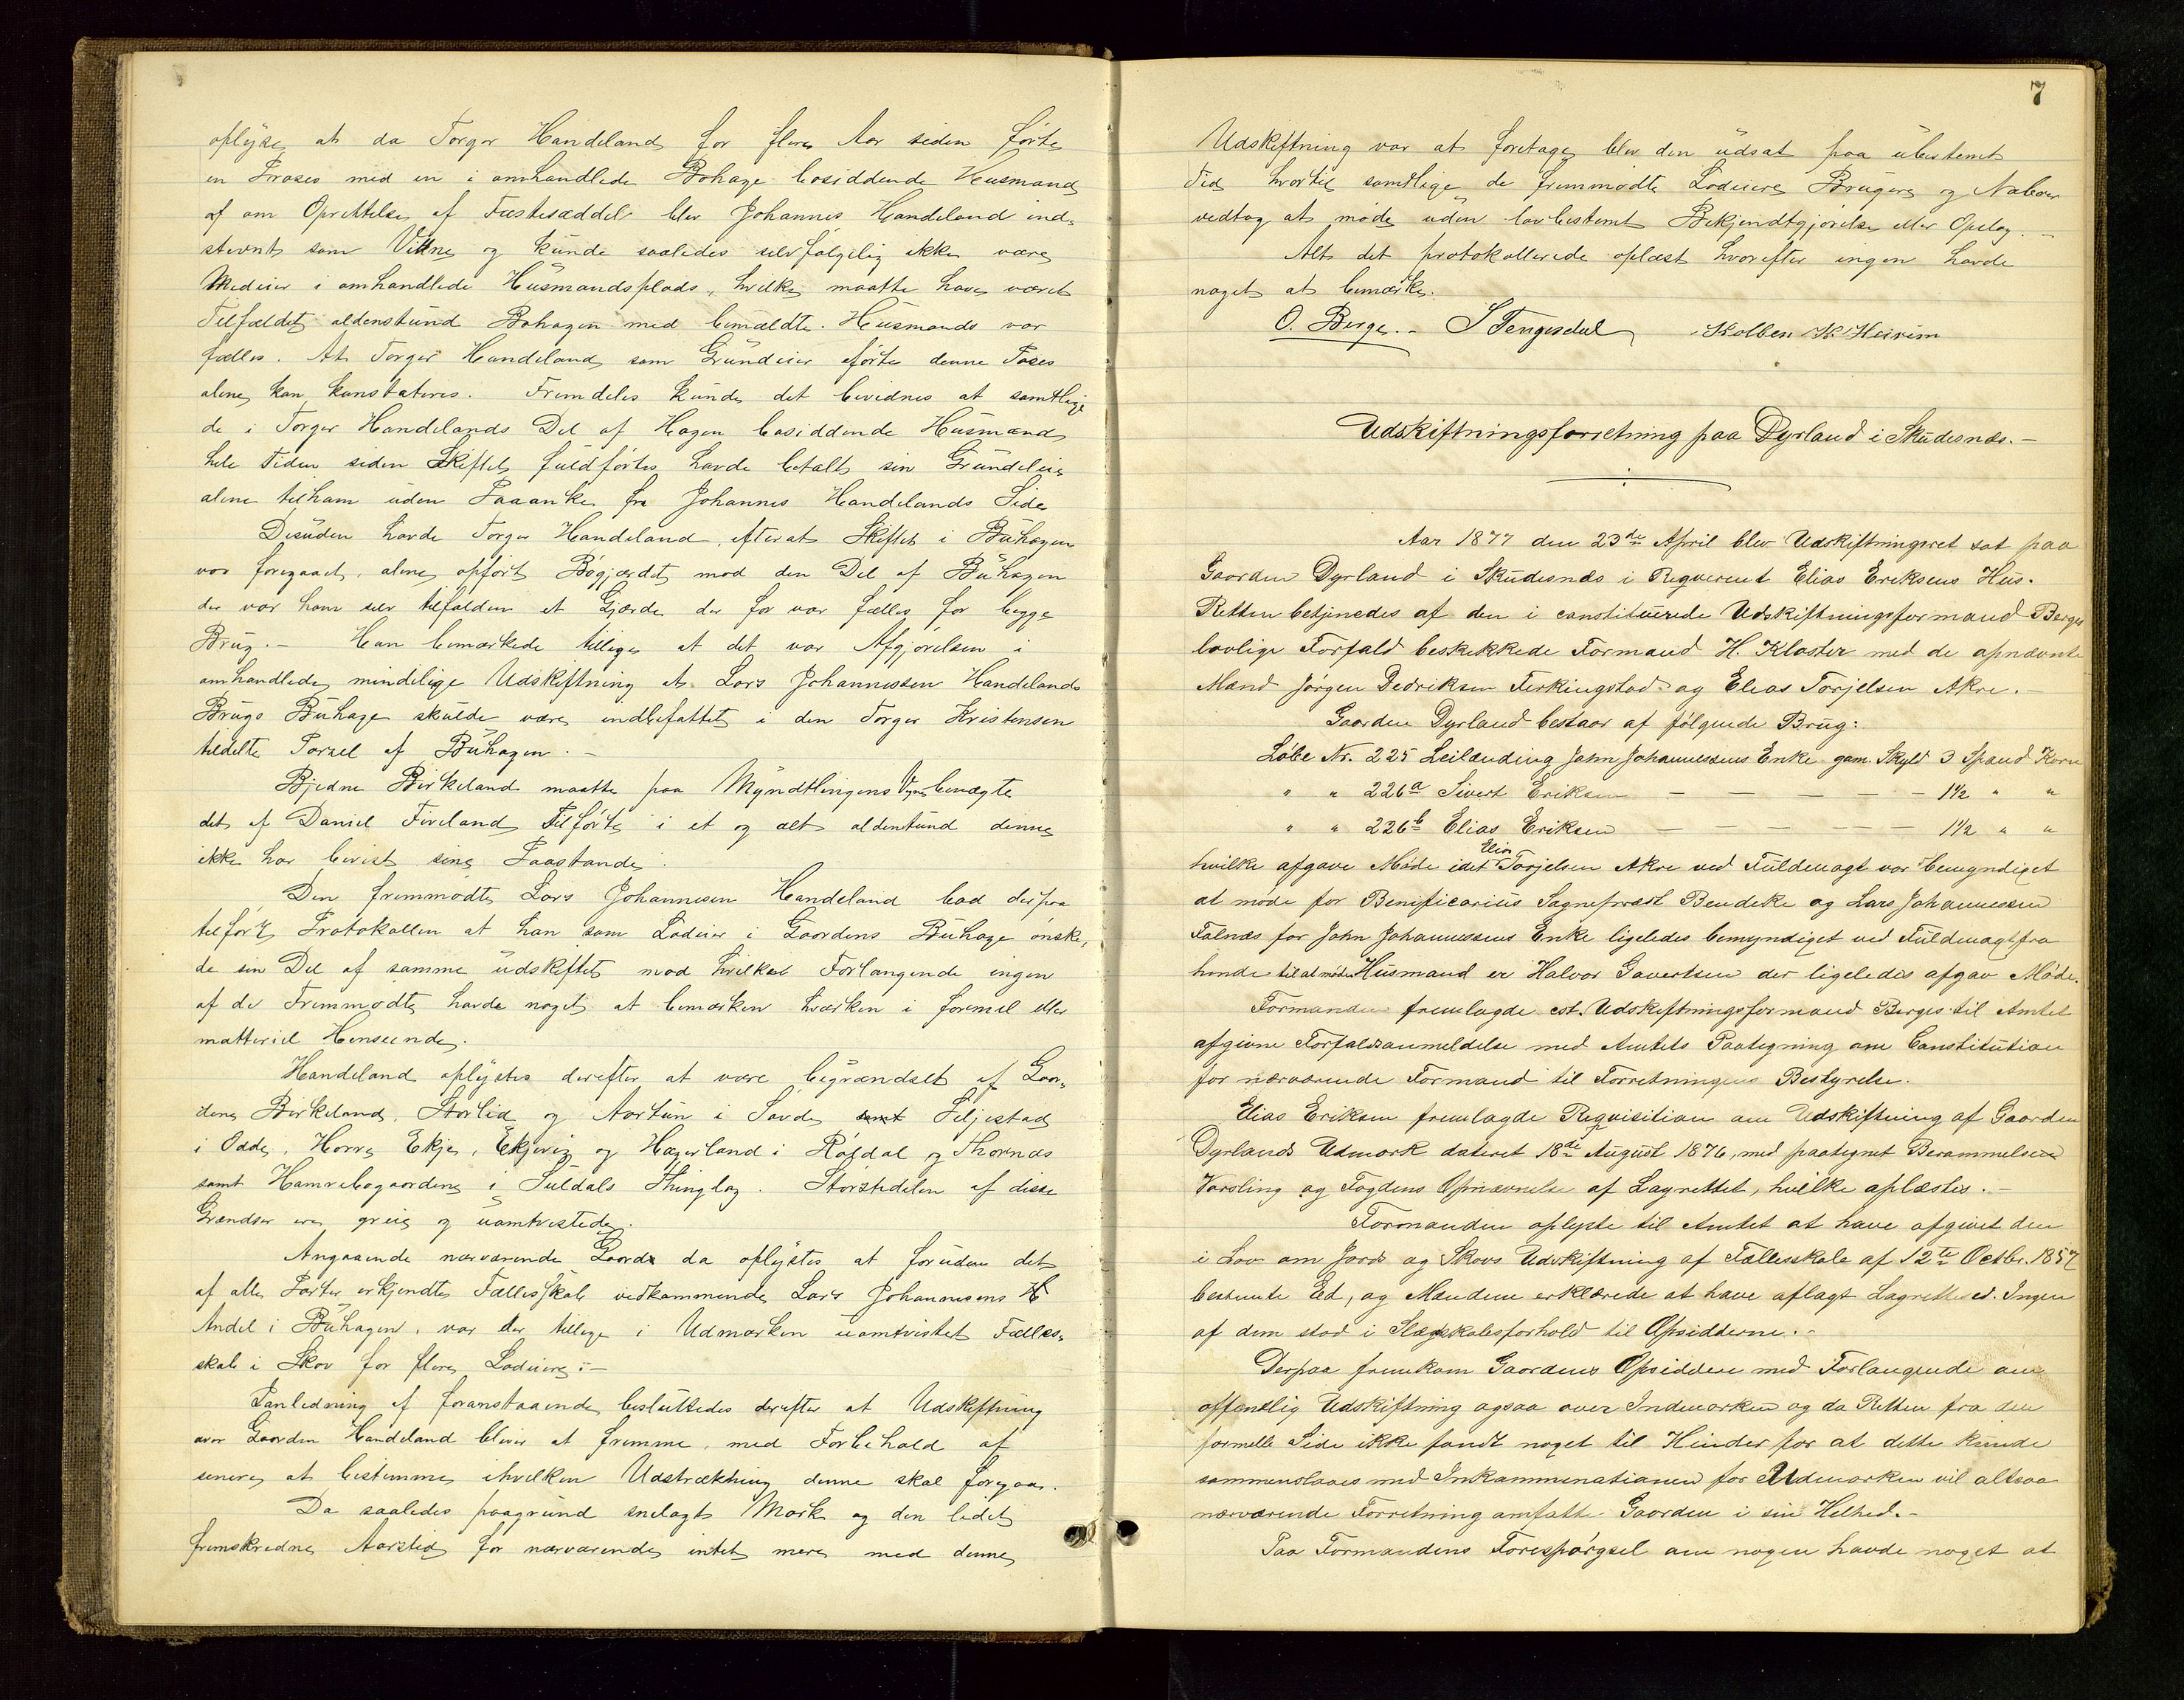 oplyse at da Torger Handeland for flere Aar siden førte
en Proses med en i omhandlede Bøhage bosiddende Husmand
af om Oprettelse af Fæstesæddel blev Johannes Handeland ind-
stevnt som Vittne og kunde saaledes selvfølgelig ikke være
Medeier i omhandlede Husmandsplads, hvilke maatte have været
Tilfældet aldenstund Bøhagen med bemældte Husmands var
fælles. At Torger Handeland som Grundeier førte denne Poses
alene kan konstateres. Fremdeles kunde det bevidnes at samtlige
de i Torger Handelands Del af Hagen bosiddende Husmænd
hele Tiden siden Skiftet fuldførtes havde betalt sin Grundleie
alene til ham uden Paaanke fra Johannes Handelands Side
Desuden havde Torger Handeland, efterat Skiftet i Buhagen
var foregaaet, alene opført Bøgjærdet mod den Del af Buhagen
der var ham selv tilfalden et Gjærde der før var fælles for begge
Brug. - Han bemærkede tillige at det var Afgjørelsen i
omhandlede mindelige Udskiftning at Lars Johannessen Handelands
Brugs Buhage skulde være indbefattet i den Torger Kristensen
tildelte Parsel af Buhagen. -
Bjedne Birkeland maatte paa Myndtlingens Vegne benægte
det af Daniel Fiveland Tilførte i et og alt aldentund denne
ikke har bevist sine Paastande.
Den fremmødte Lars Johannesen Handeland bad derpaa
tilført Protokollen at han som Lodeier i Gaardens Buhage ønske,
de sin Del af samme udskiftet mod hvilket Forlangende ingen
af de Fremmødte havde noget at bemærken hværken i formel eller
matteriel Henseende.
Handeland oplystes derefter at være begrændset af Gaar-
dene Birkeland, Storlid og Aartun i Savde samt Seljestad
i Odde, Horre Ekje, Ekjevig og Hægerland i Røldal og Thornæs
samt Hamrabøgaardene i Suldals Thinglag. Størstedelen af disse
Grændser ere greie og uomtvistede.
Angaaende nærværende Gaard da oplystes at foruden det
af alle Parter erkjendte Fællesskab vedkommende Lars Johannesens H
Andel i Buhagen, var der tillige i Udmarken uomtvistet Fælles-
skab i Skov for flere Lodeiere: -
Ianledning af foranstaaende besluttedes derefter at Udskiftning
over Gaarden Handeland bliver at fremme, med Forbehold af
senere at bestemme ihvilken Udstrækning denne skal foregaa.
Da saaledes paagrund snelagt Mark og den ledet
fremskredne Aarstid for nærværende intet mere med denne
7
Udskiftning var at foretage blev den udsat paa ubestemt
Tid hvortil samtlige de fremmødte Lodeiere Brugere og Naboer
vedtog at møde uden lovbestemt Bekjendtgjørelse eller Opslag. -
Alt det protokollerede oplæst hvorefter ingen havde
noget at bemærke.
O. Berge. - S Tengesdal Kolben K Heirem
Udskiftningsforretning paa Dyrland i Skudesnæs. -
Aar 1877 den 23de April blev Udskiftningsret sat paa
Gaarden Dyrland i Skudesnæs i Reqverent Elias Eriksens Hus.
Retten betjenedes af den i constituerede Udskiftningsformand Berges
lovlige Forfald beskikkede Formand H. Kloster med de opnævnte
Mænd Jørgen Dedriksen Ferkingstad og Elias Torjelsen Akre. -
Gaarden Dyrland bestaar af følgende Brug:
Løbe Nr. 225 Leilænding John Johannessens Enke gam. Skyld 3 Spand Korn
" " 226a Sivert Eriksen — — — — — 1½ " "
" " 226b Elias Eriksen — — — — — 1½ " "
hvilke afgave Møde idet Elias Torjelsen Akre ved Fuldmagt var bemyndiget
at møde for Benificarius Sognepræst Bendeke og Lars Johannessen
Falnæs for John Johannessens Enke ligeledes bemyndiget ved Fuldmagt fra
hende til at møde Husmand er Halvor Gavertsen der ligeledes afgav Møde.
Formanden fremlagde cst. Udskiftningsformand Berges til Amtet
afgivne Forfaldsanmeldelse med Amtets Paategning om Constitution
for nærværende Formand til Forretningens Bestyrelse.
Elias Eriksen fremlagde Reqvisition om Udskiftning af Gaarden
Dyrlands Udmark dateret 18de August 1876, med paategnet Berammelse
Varsling og Fogdens Opnævnelse af Lagrettet, hvilke oplæstes. -
Formanden oplyste til Amtet at have afgivet den
i Lov om Jords og Skovs Udskiftning af Fællesskab af 12te Octbr. 1857
bestemte Ed, og Mændene erklærede at have aflagt Lagretteed. Ingen
af dem stod i Slægskabsforhold til Opsidderne. -
Derpaa fremkom Gaardens Opsiddere med Forlangende om
offentlig Udskiftning ogsaa over Indmarken og da Retten fra den
formelle Side ikke fandt noget til Hinder for at dette kunde
sammenslaaes med Inkamminationen for Udmarken vil altsaa
nærværende Forretning omfatte Gaarden i sin Helhed. -
Paa Formandens Forespørgsel om nogen havde noget at